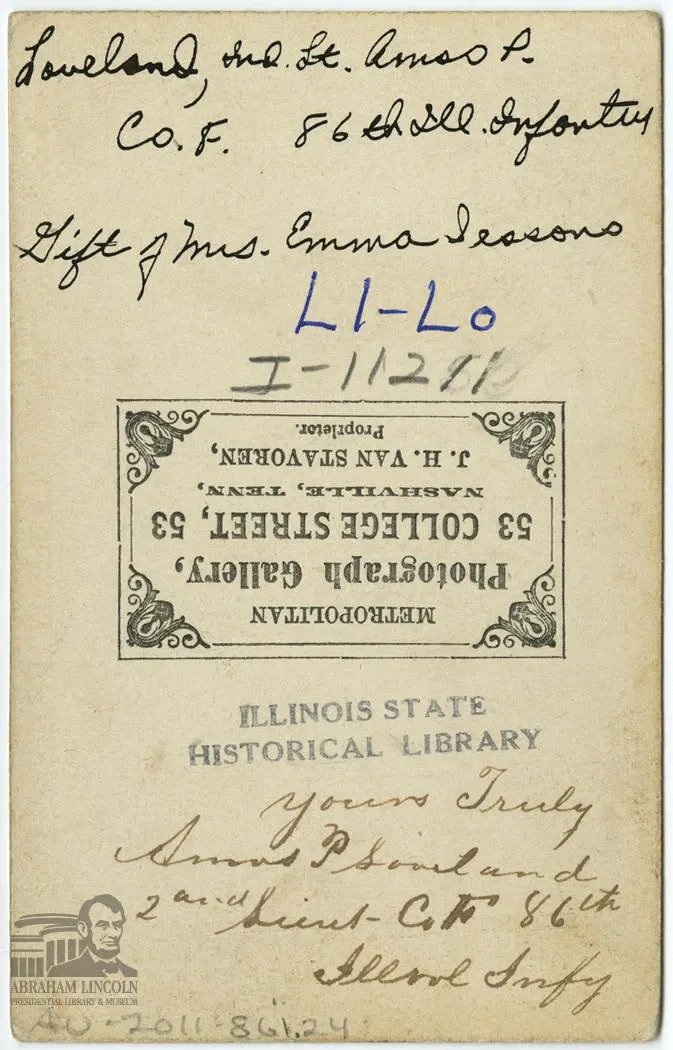 Loveland, 2nd. Lt. Amos P.
Co. F. 86th Ill. Infantry
Gift of Mrs. Emma Sessons
LI-LO
I-11271
METROPOLITAN
Photograph Gallery,
53 COLLEGE STREET, 53
NASHVILLE, TENN,
J. H. VAN STAVOREN,
Proprietor.
ILLINOIS STATE
HISTORICAL LIBRARY
Yours Truly
Amos P Loveland
2and Lieut- Co F 86th
Ill vol Infy
ABRAHAM LINCOLN
PRESIDENTIAL LIBRARY & MUSEUM
AU-2011-861.24